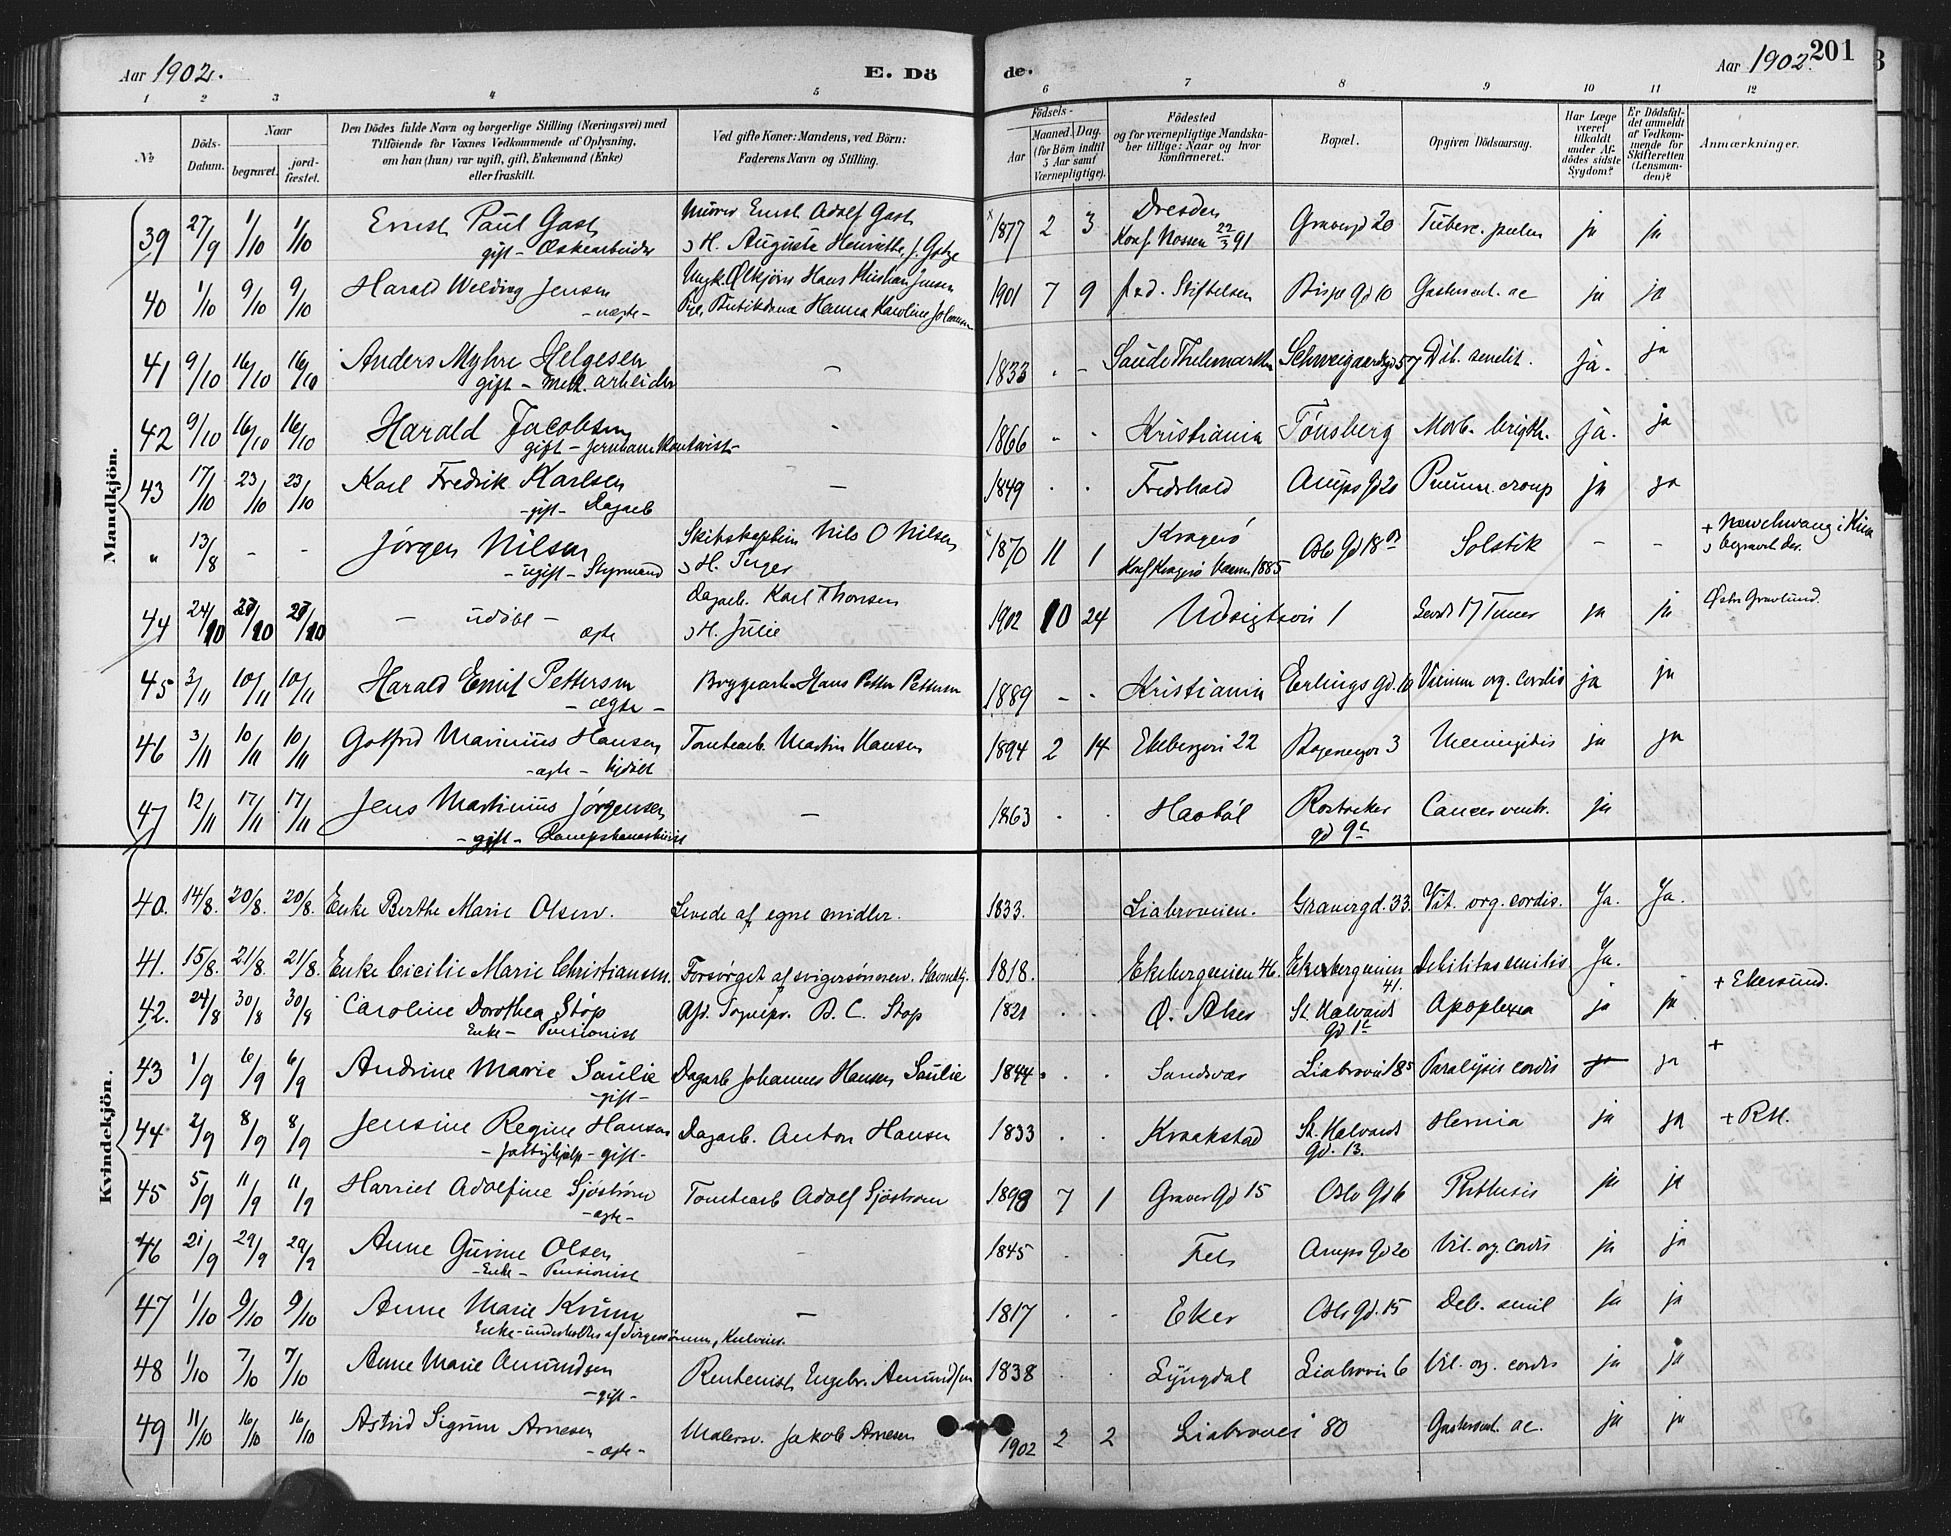 Aar 1902.
E. Dö
de.
Aar 1902.
201
1 2 3 4 5 6 7 8 9 10 11 12
№
Döds-Datum.
Naar
begravet.
jordfæstet.
Den Dödes fulde Navn og borgerlige Stilling (Næringsvei) med
Tilföiende for Voxnes Vedkommende af Oplysning,
om han (hun) var ugift, gift, Enkemand (Enke)
eller fraskilt.
Ved gifte Koner: Mandens, ved Börn:
Faderens Navn og Stilling.
Födsels-
Aar
Maaned. Dag.
(for Börn indtil
5 Aar samt
Værnepligtige).
Födested
og for værnepligtige Mandskaber tillige: Naar og hvor
konfirmeret.
Bopæl.
Opgiven Dödsaarsag.
Har Læge
været
tilkaldt
under Afdödes sidste
Sygdom?
Er Dödsfaldet anmeldt
af Vedkommende for
Skifteretten
(Lensmanden)?
Anmærkninger.
Mandkjön.
39 27/9 1/10 1/10 Ernst Paul Gast Murer Ernst Adolf Gast 1877 2 3 Dresden Gravergd 20 Tuberc. pulm ja ja
gift - Æskearbeider H. Auguste Henriette, f. Götze Konf. Nossen 22/3 91
40 1/10 9/10 9/10 Harald Welding Jensen Ungk. Ølkjører Hans Kristian Jensen 1901 7 9 fød. Stiftelsen Bispe Gd 10 Gastroent. ac ja ja
- uægte - Pige, Hanna Karoline
41 9/10 16/10 16/10 Anders Myhre Helgesen - 1833 . - Saude Thelemarken Schweigaardsgd 57 Dil. senilit. ja. ja
gift - mek. arbeider
42 9/10 16/10 16/10 Harald Jacobsen - 1866 - - Kristiania Tönsberg Morb. brigth. ja. ja
gift -
43 17/10 23/10 23/10 Karl Fredrik Karlsen - 1849 . . Fredrhald Arups Gd 20 Pneum. croup ja ja
- gift - Dagarb
" 13/8 - - Jörgen Nilsen Skibskaptein Nils O Nilsen 1870 11 1 Kragerö Oslo Gd 18 Solstik - - + i Kina
- ugift - Styrmand H. Inger Konf Kragerö 1885 begravet der.
44 24/10 27/10 27/10 - udöbt - Dagarb. Karl Thorsen 1902 10 24 Udsigtsvei 1 Levet 17 Timer ja ja Østre Gravlund.
ægte H. Julie
45 3/11 10/11 10/11 Harald Emil Pettersen Bryggearb. Hans Petter Pettersen 1889 - - Kristiania Erlings Gd. 10 Vitium org. cordis ja ja
- ægte -
46 3/11 10/11 10/11 Gotfrid Marinius Hansen Tomtearb. Martin Hansen 1894 2 14 Ekebergvei 22 3 Meningitis ja ja
- ægte - hjdöbt
47 12/11 17/11 17/11 Jens Martinius Jörgensen - 1863 . . Havböl Rostocker Cancer ventr. ja
- gift - gd 9
Kvindekjön.
40. 14/8. 20/8. 20/8. Enke Berthe Marie Olsen. Levede af egne midler. 1833. Liabroveien. Gravergd. 33. Vit. org. cordis. Ja. Ja.
41. 15/8. 21/8. 21/8. Enke Cicilie Marie Christiansen. Forsörget af svigersönnen. 1818. Ekebergveien 46. Ekebergveien Debilitas senilis Ja.
41. + Ekersund.
42. 24/8 30/8 30/8 Caroline Dorothea Støp Afd. Sognepr. B. C. Støp 1821 . . Ö. Aker St. Halvards Apoplexia ja ja
Enke - Pensionist gd 1
43 1/9 6/9 6/9 Andrine Marie Saulie Dagarb Johannes Hansen Saulie 1844 . . Sandsvær Liabrovei 18 Paralysis cordis ja ja +
- gift -
44 2/9 8/9 8/9 Jensine Regine Hansen Dagarb. Anton Hansen 1833 . . Kraakstad St. Halvards Hernia ja ja + RH.
- fattighjælp - gift - Gd. 13.
45 5/9 11/9 11/9 Harriet Adolfine Sjöström Tomtearb Adolf Sjöström 1898 7 1 Graver Gd 15 Oslo Gd 6 Phthisis ja ja
- ægte -
46 21/9 29/9 29/9 Anne Gurine Olsen - 1845 . . Fet Arups Gd 20 Vit. org. cordis ja ja
- Enke - Pensionist
47 1/10 9/10 9/10 Anne Marie - 1817 . . Eker Oslo gd. 15 Deb. senil ja ja
Enke - underholdtes af
48 1/10 7/10 7/10 Anne Marie Amundsen Rentenist Engebr. Amundsen 1838 Lyngdal Liabrovei 6 Vit. org. cordis ja ja
- gift -
49 11/10 16/10 16/10 Astrid Sigrun Arnesen Malersv. Jakob Arnesen 1902 2 2 Liabrovei 80 Gastroent. ac. ja ja
- ægte -